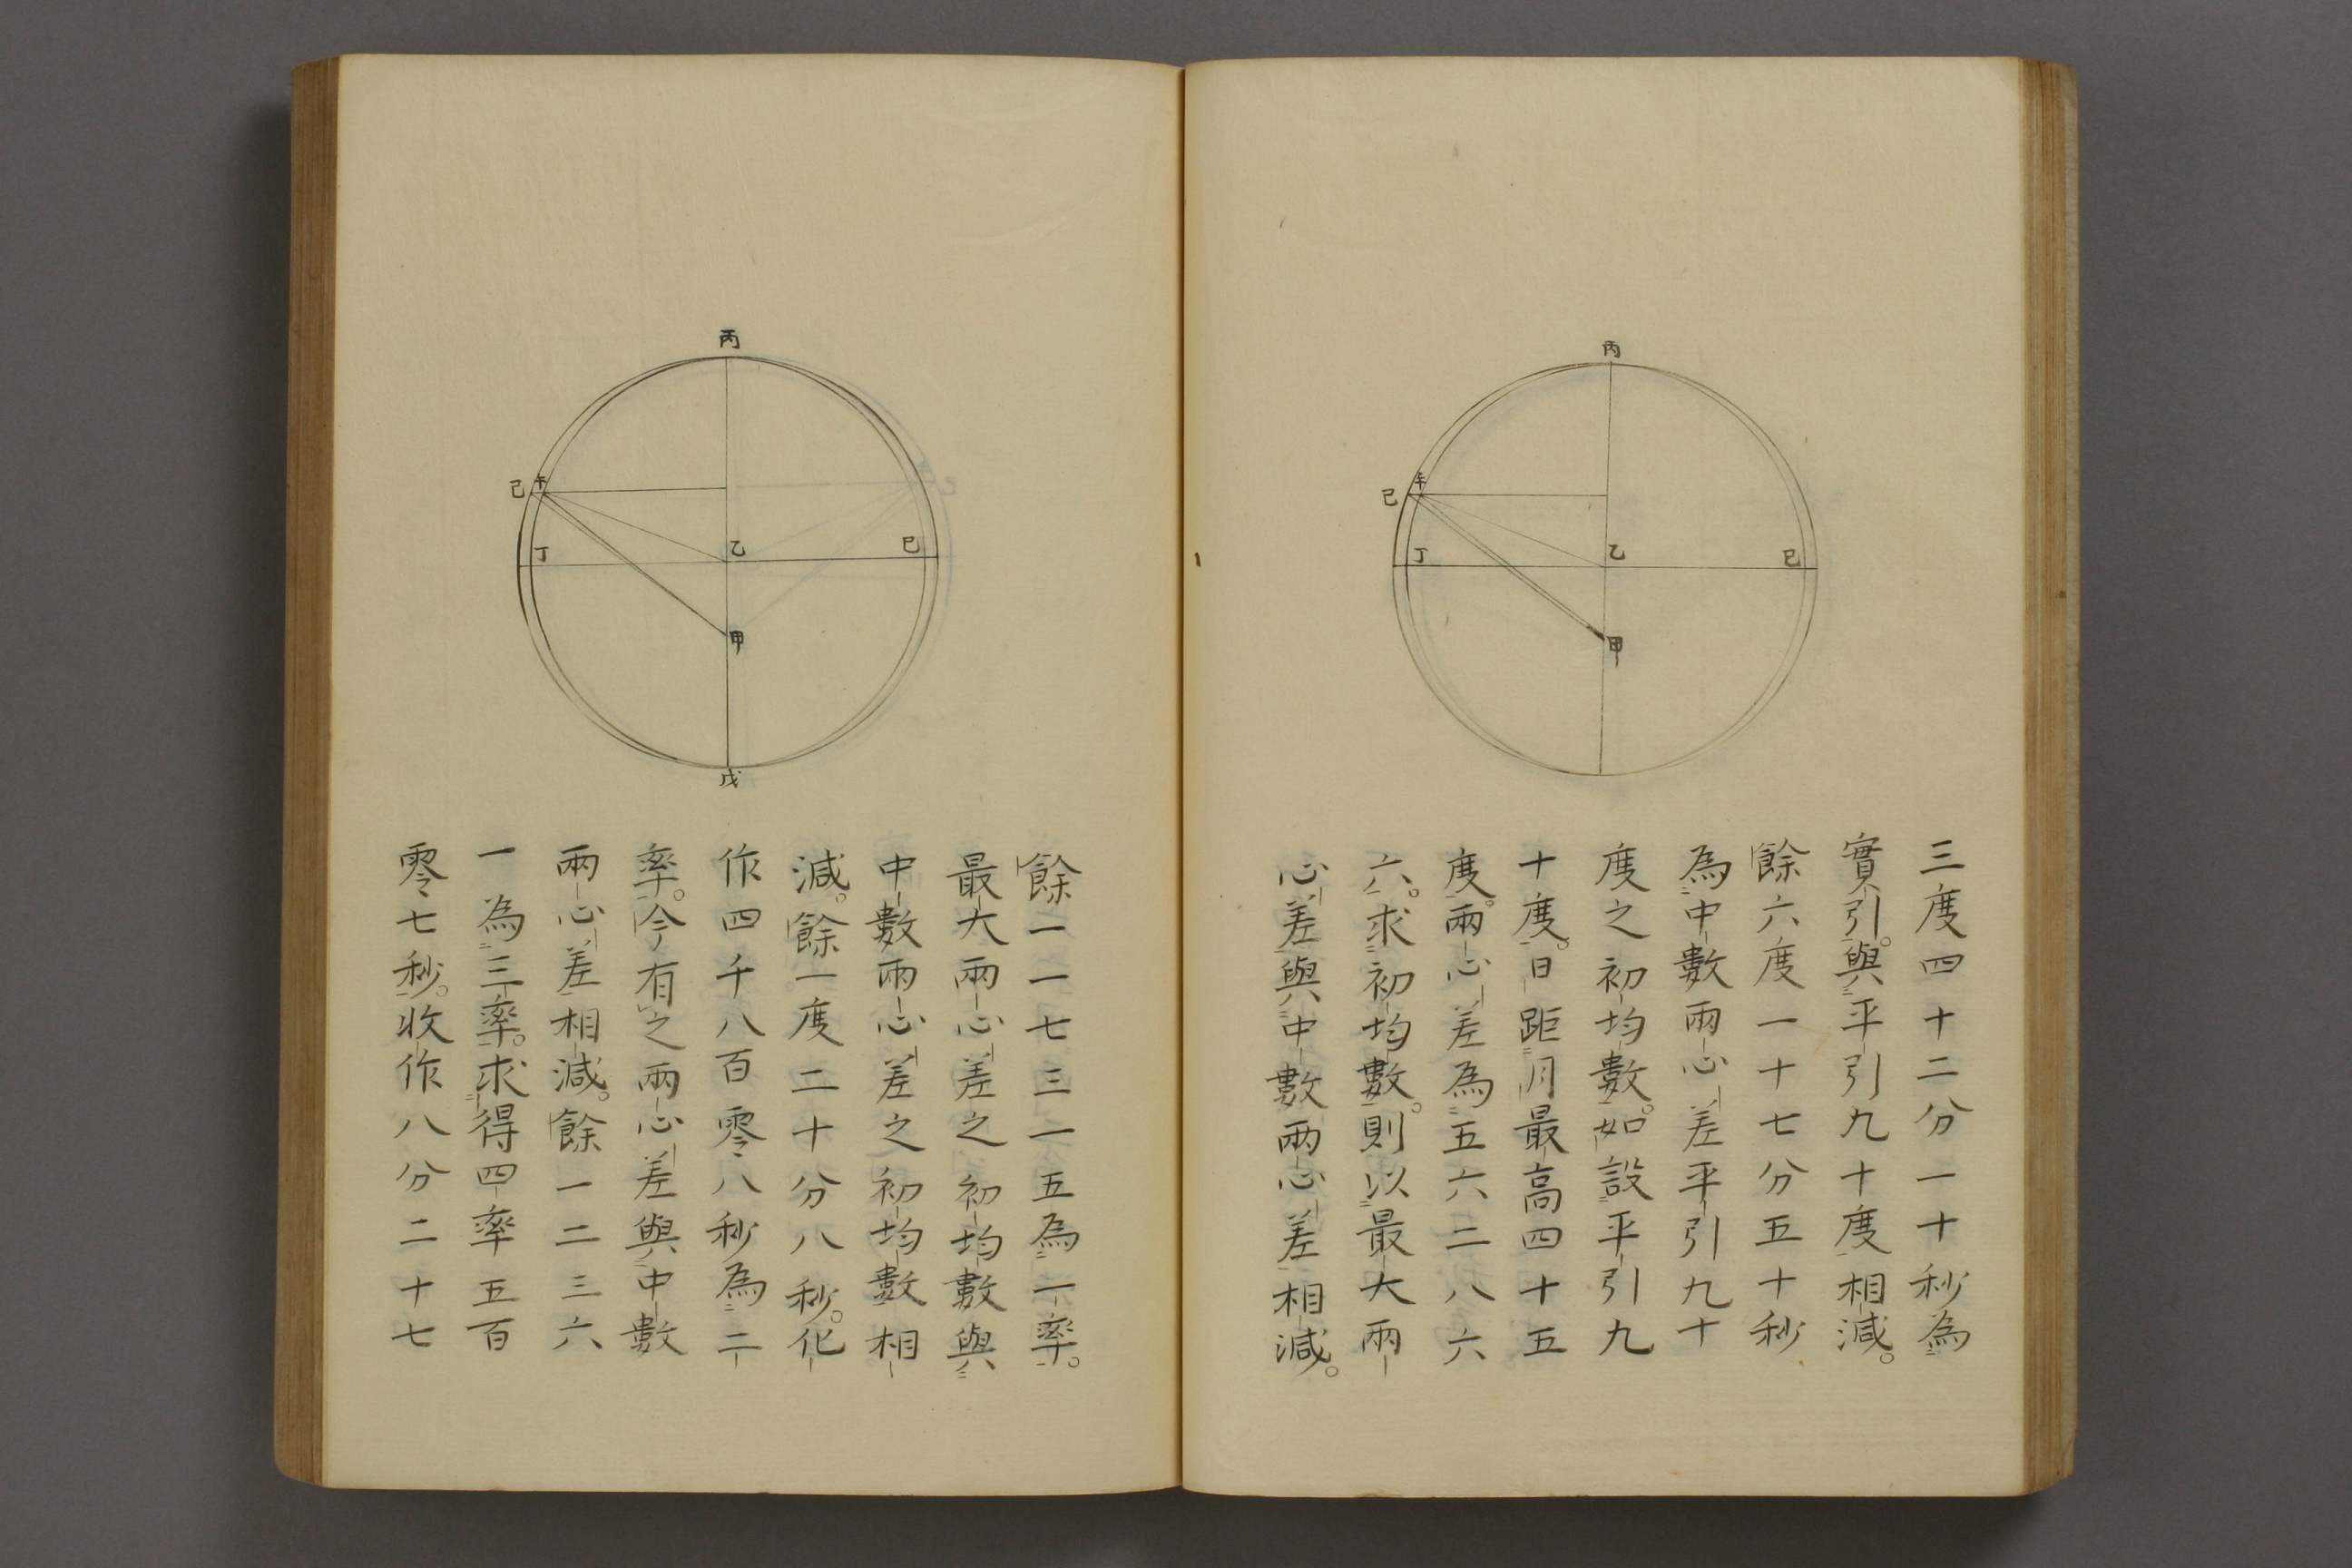 丙
己
午
丁
乙
巳
甲
三度四十二分一十秒為
實引。與平引九十度相減。
餘六度一十七分五十秒
為中數兩心差平引九十
度之初均數。如設平引九
十度。日距月最高四十五
度。兩心差為五六二八六
六。求初均數。則以最大兩
心差與中數兩心差相減。
丙
己
午
丁
乙
巳
甲
戊
餘一一七三一五為一率。
最大兩心差之初均數與
中數兩心差之初均數相
減。餘一度二十分八秒。化
作四千八百零八秒為二
率。今有之兩心差與中數
兩心差相減。餘一二三六
一為三率。求得四率五百
零七秒。收作八分二十七